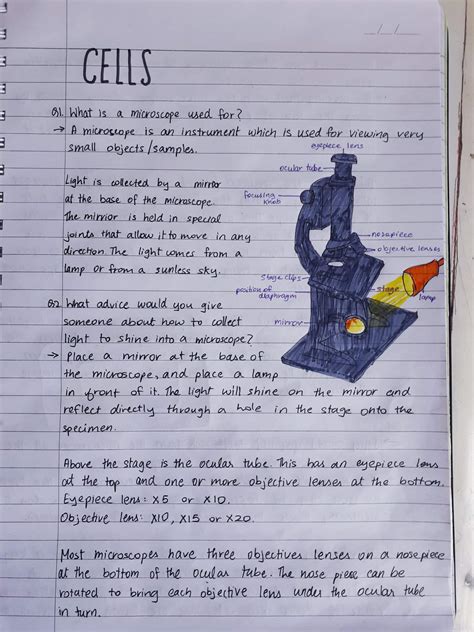 _/_/_
CELLS
Q1. What is a microscope used for?
→ A microscope is an instrument which is used for viewing very
small objects/samples.
eyepiece lens
ocular tube
focusing
knob
nosepiece
objective lenses
stage clips
position of
diaphragm
stage
lamp
mirror
Light is collected by a mirror
at the base of the microscope.
The mirrior is held in special
joints that allow it to move in any
direction. The light comes from a
lamp or from a sunless sky.
Q2. What advice would you give
someone about how to collect
light to shine into a microscope?
→ Place a mirror at the base of
the microscope, and place a lamp
in front of it. The light will shine on the mirror and
reflect directly through a hole in the stage onto the
specimen.
Above the stage is the ocular tube. This has an eyepiece lens
at the top and one or more objective lenses at the bottom.
Eyepiece lens: X5 or X10.
Objective lens: X10, X15 or X20.
Most microscopes have three objectives lenses on a nosepiece
at the bottom of the ocular tube. The nose piece can be
rotated to bring each objective lens under the ocular tube
in turn.